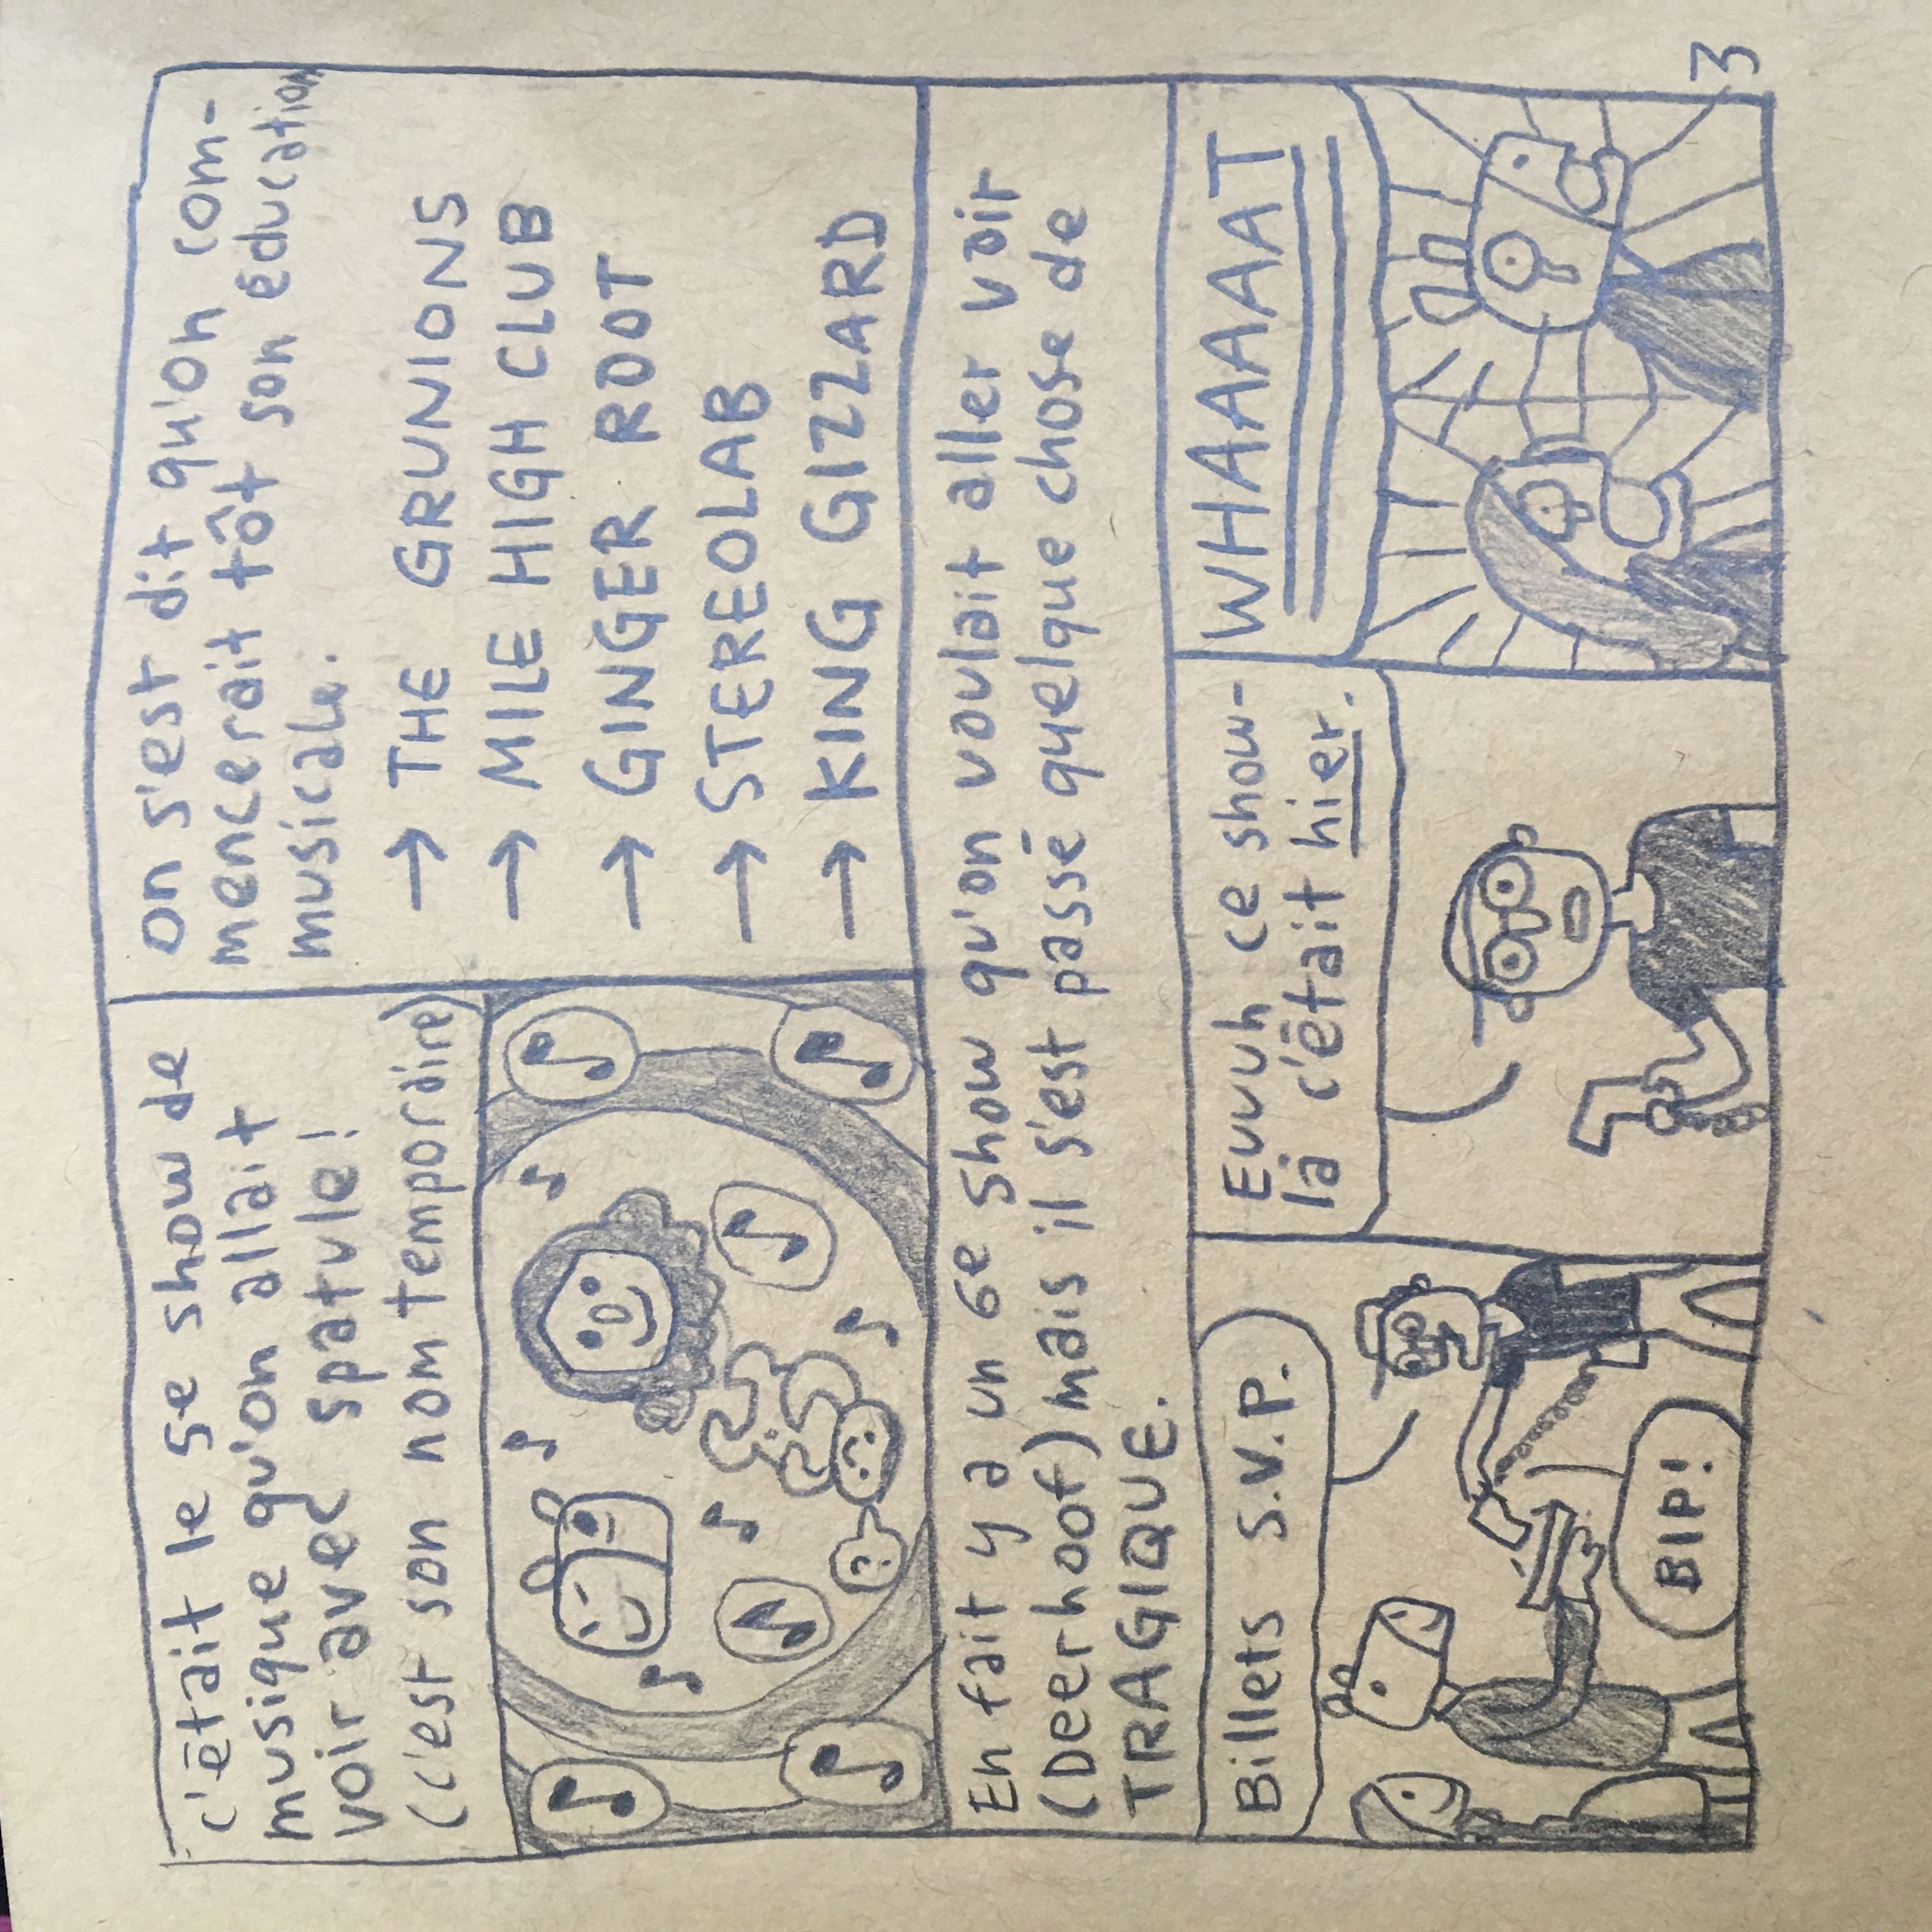 c'était le 5e show de
musique qu'on allait
voir avec spatule!
(c'est son nom temporaire)
on s'est dit qu'on com-
mencerait tôt son éducation
musicale.
→ THE GRUNIONS
→ MILE HIGH CLUB
→ GINGER ROOT
→ STEREOLAB
→ KING GIZZARD
En fait y a un 6e show qu'on voulait aller voir
(Deerhoof) mais il s'est passé quelque chose de
TRAGIQUE.
Billets S.V.P.
BIP!
Euuuh ce show-
là c'était hier.
WHAAAAAT
3